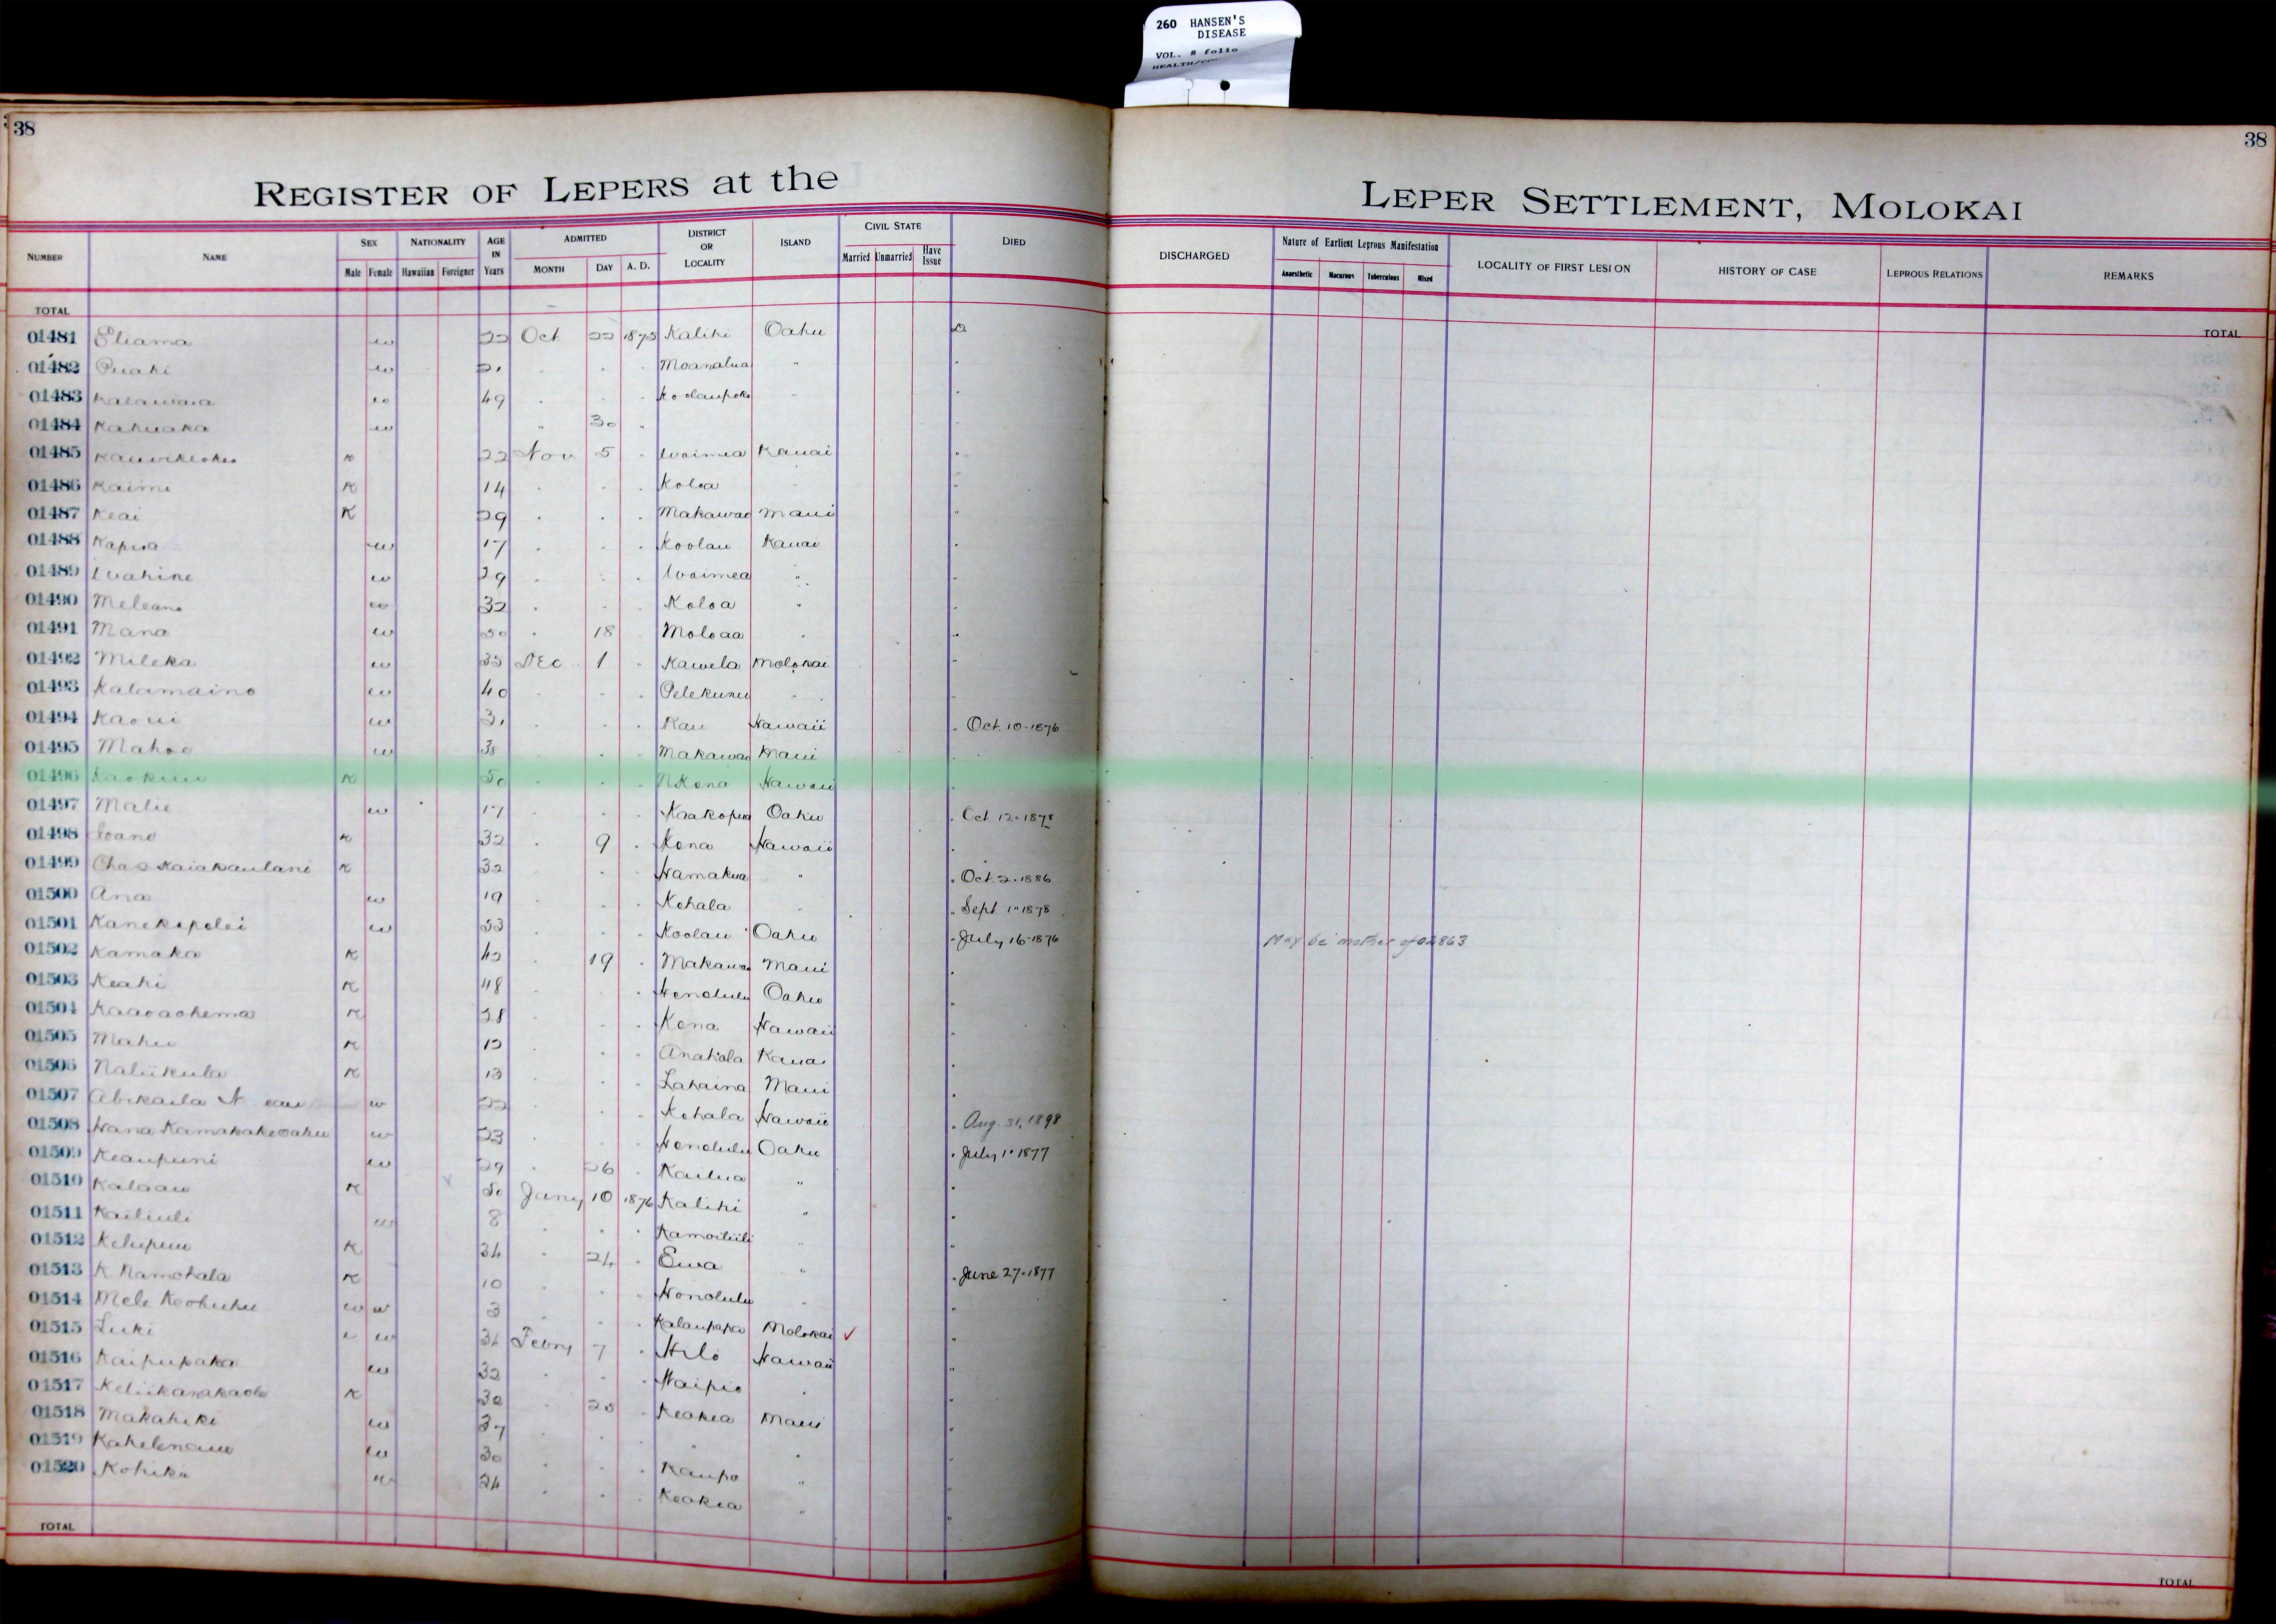 260 HANSEN'S
DISEASE
VOL. 8 folio
38
38
REGISTER OF LEPERS at the LEPER SETTLEMENT, MOLOKAI
NUMBER NAME SEX Male Female NATIONALITY Hawaiian Foreigner AGE IN Years ADMITTED MONTH DAY A. D. DISTRICT OR LOCALITY ISLAND CIVIL STATE Married Unmarried Have Issue DIED DISCHARGED Nature of Earliest Leprous Manifestation Anaesthetic Macurous Tuberculous Mixed LOCALITY OF FIRST LESION HISTORY OF CASE LEPROUS RELATIONS REMARKS
TOTAL TOTAL
01481 Eliama w 22 Oct 22 1875 Kalihi Oahu D
01482 Puahi w " " " Moanalua "
01483 Kalawaia w 49 " " " Koolaupoko "
01484 Kahuaka w " 30 "
01485 K 22 Nov 5 " Waimea Kauai "
01486 Kaimi K 14 " " " Koloa "
01487 Keai K 29 " " " Makawao Maui "
01488 Kapua w 17 " " " Koolau Kauai "
01489 Wahine w 29 " " " Waimea " "
01490 Meleana w 32 " " " Koloa " "
01491 Mana w 50 " 18 Moloaa " "
01492 Mileka w 35 Dec 1 " Kawela Molokai "
01493 Kalamaino w 40 " " " Pelekunu " "
01494 Kaoui w 31 " " " Kau Hawaii " Oct. 10-1876
01495 Mahoe w 38 " " Makawao Maui "
01496 Kaokuu K 50 " " " N Kona Hawaii "
01497 Malie w 17 " " " Kaakopua Oahu " Oct 12-1878
01498 Ioane K 32 " 9 " Kona Hawaii "
01499 Chas Kaiakaulani K 32 " " " Hamakua " " Oct. 2-1886
01500 Ana w 19 " " " Kohala " " Sept 1-1878
01501 Kanekapolei w 53 " " " Koolau Oahu " July 16-1876 May be mother of 02863
01502 Kamaka K 42 " 19 " Makawao Maui "
01503 Keahi K 48 " " " Honolulu Oahu "
01504 Kaaoaohema K 28 " " " Kona Hawaii "
01505 Mahu K 12 " " " Anahola Kauai "
01506 Naliikula K 13 " " " Lahaina Maui "
01507 Abikaila N w 22 " " " Kohala Hawaii " Aug. 31, 1898
01508 Hana Kamakakeoahu w 23 " " " Honolulu Oahu " July 1-1877
01509 Keaupuni w 29 " 26 " Kailua " "
01510 Kalaau K 50 Jany 10 1876 Kalihi " "
01511 Kailiuli w 8 " " " Kamoiliili " "
01512 Kelupuu K 34 " 24 " Ewa " " June 27-1877
01513 K Namohala K 10 " " " Honolulu " "
01514 Mele Keohuhu w w 3 " " " Kalaupapa Molokai ✓ "
01515 Luki w 34 Febry 7 " Hilo Hawaii "
01516 Kaipupaka w 32 " " " Waipio " "
01517 Keliikanakaole K 30 " 25 " Keokea Maui "
01518 Makahiki w 37 " " " " "
01519 w 30 " " " Kaupo " "
01520 Kohikii w 24 " " " Keokea " "
TOTAL TOTAL